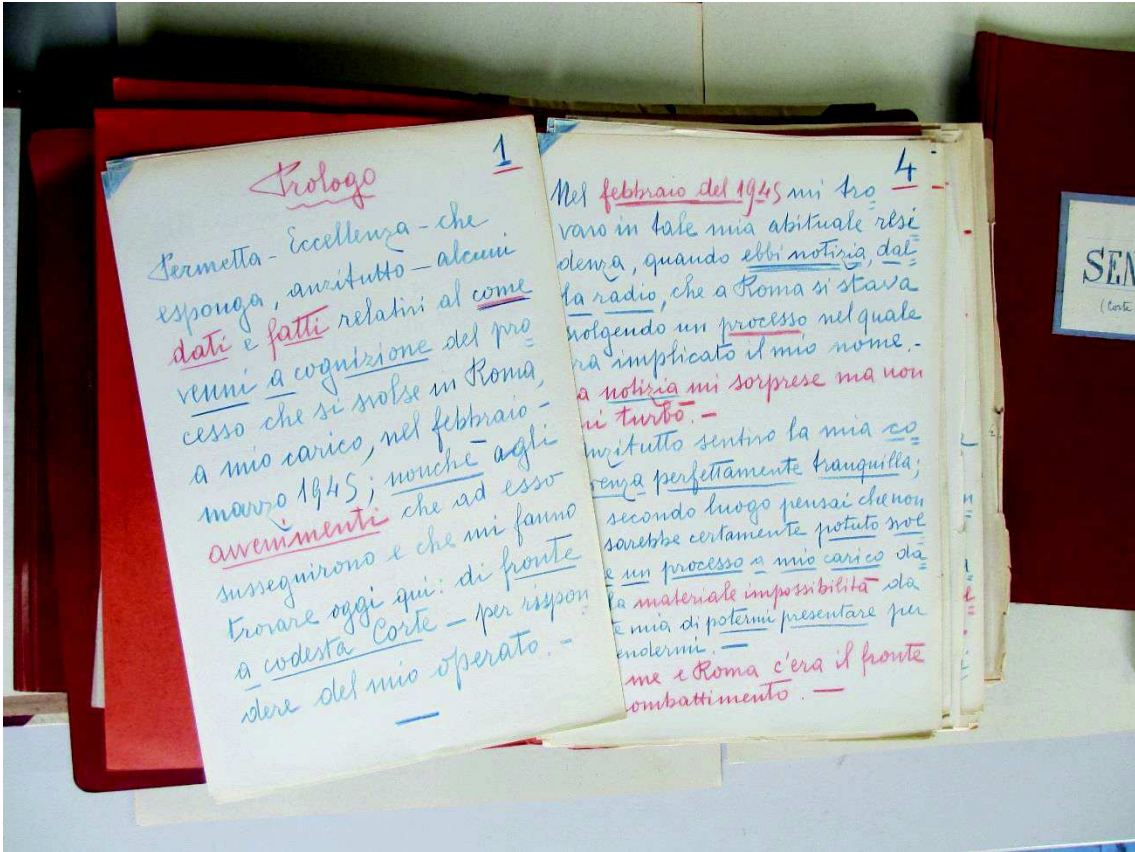 1
Prologo
Permetta - Eccellenza - che
esponga, anzitutto - alcuni
dati e fatti relativi al come
venni a cognizione del pro
cesso che si svolse in Roma,
a mio carico, nel febbraio -
marzo 1945; nonchè agli
avvenimenti che ad esso
susseguirono e che mi fanno
trovare oggi qui: di fronte
a codesta Corte - per rispon
dere del mio operato. -
4
Nel febbraio del 1945 mi tro
vavo in tale mia abituale resi
denza, quando ebbi notizia, dal
la radio, che a Roma si stava
svolgendo un processo nel quale
ra implicato il mio nome. -
a notizia mi sorprese ma non
i turbò. -
nzitutto sentivo la mia co
enza perfettamente tranquilla;
secondo luogo pensai che non
sarebbe certamente potuto svol
e un processo a mio carico da
la materiale impossibilità da
te mia di potermi presentare per
endermi. -
me e Roma c'era il fronte
ombattimento. -
SEN
(Corte